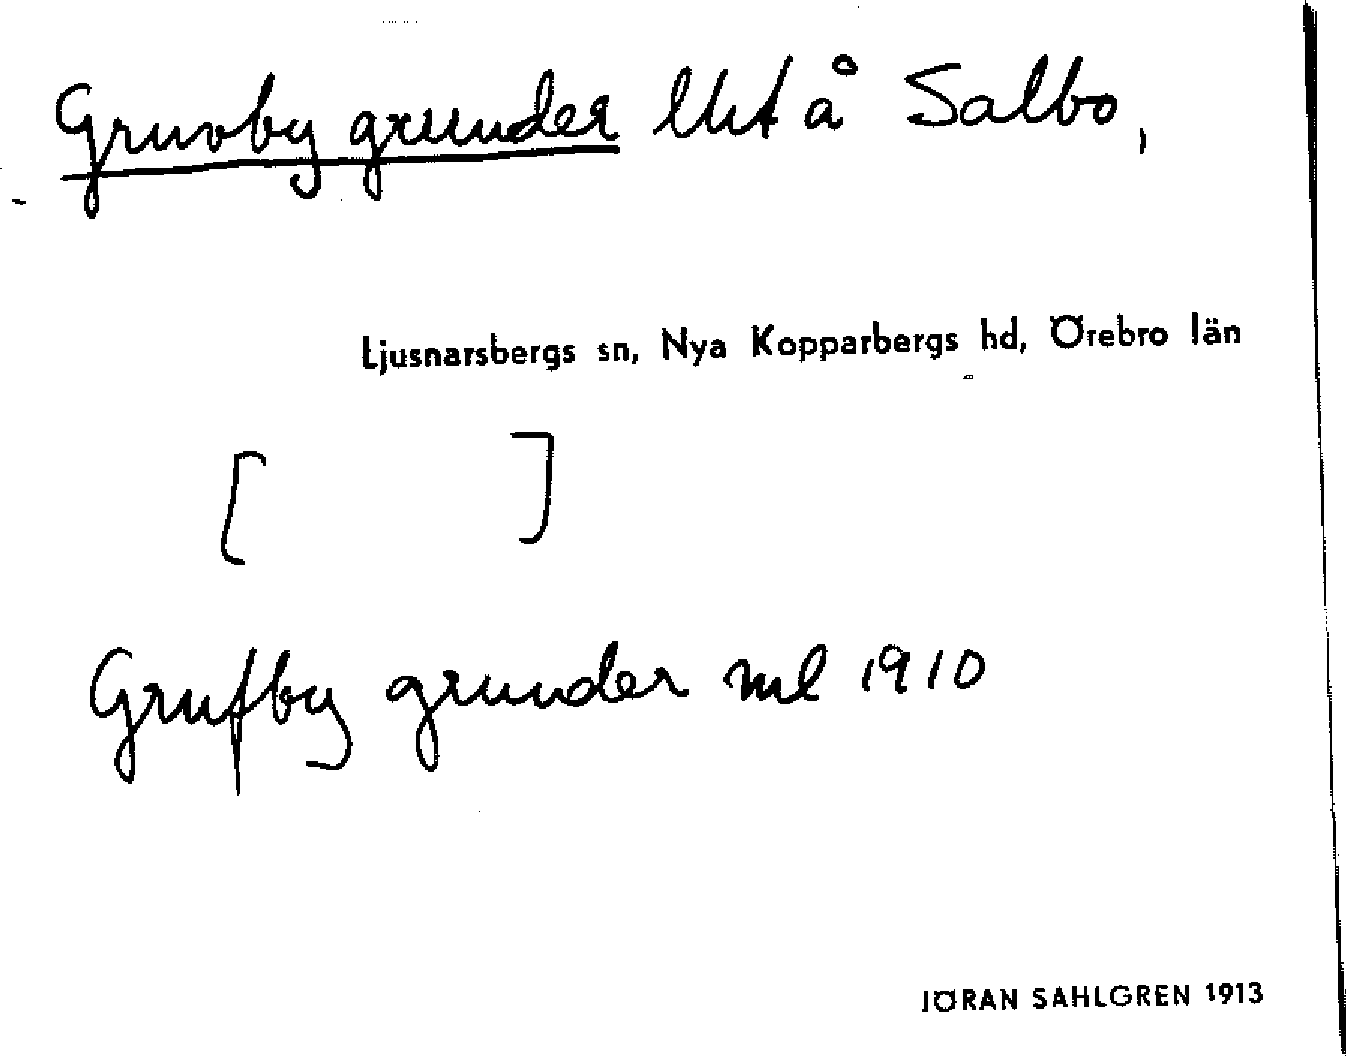 Gruvby grunder lht å Salbo,
Ljusnarsbergs sn, Nya Kopparbergs hd, Örebro län
[ ]
Grufby grunder ml 1910
JÖRAN SAHLGREN 1913